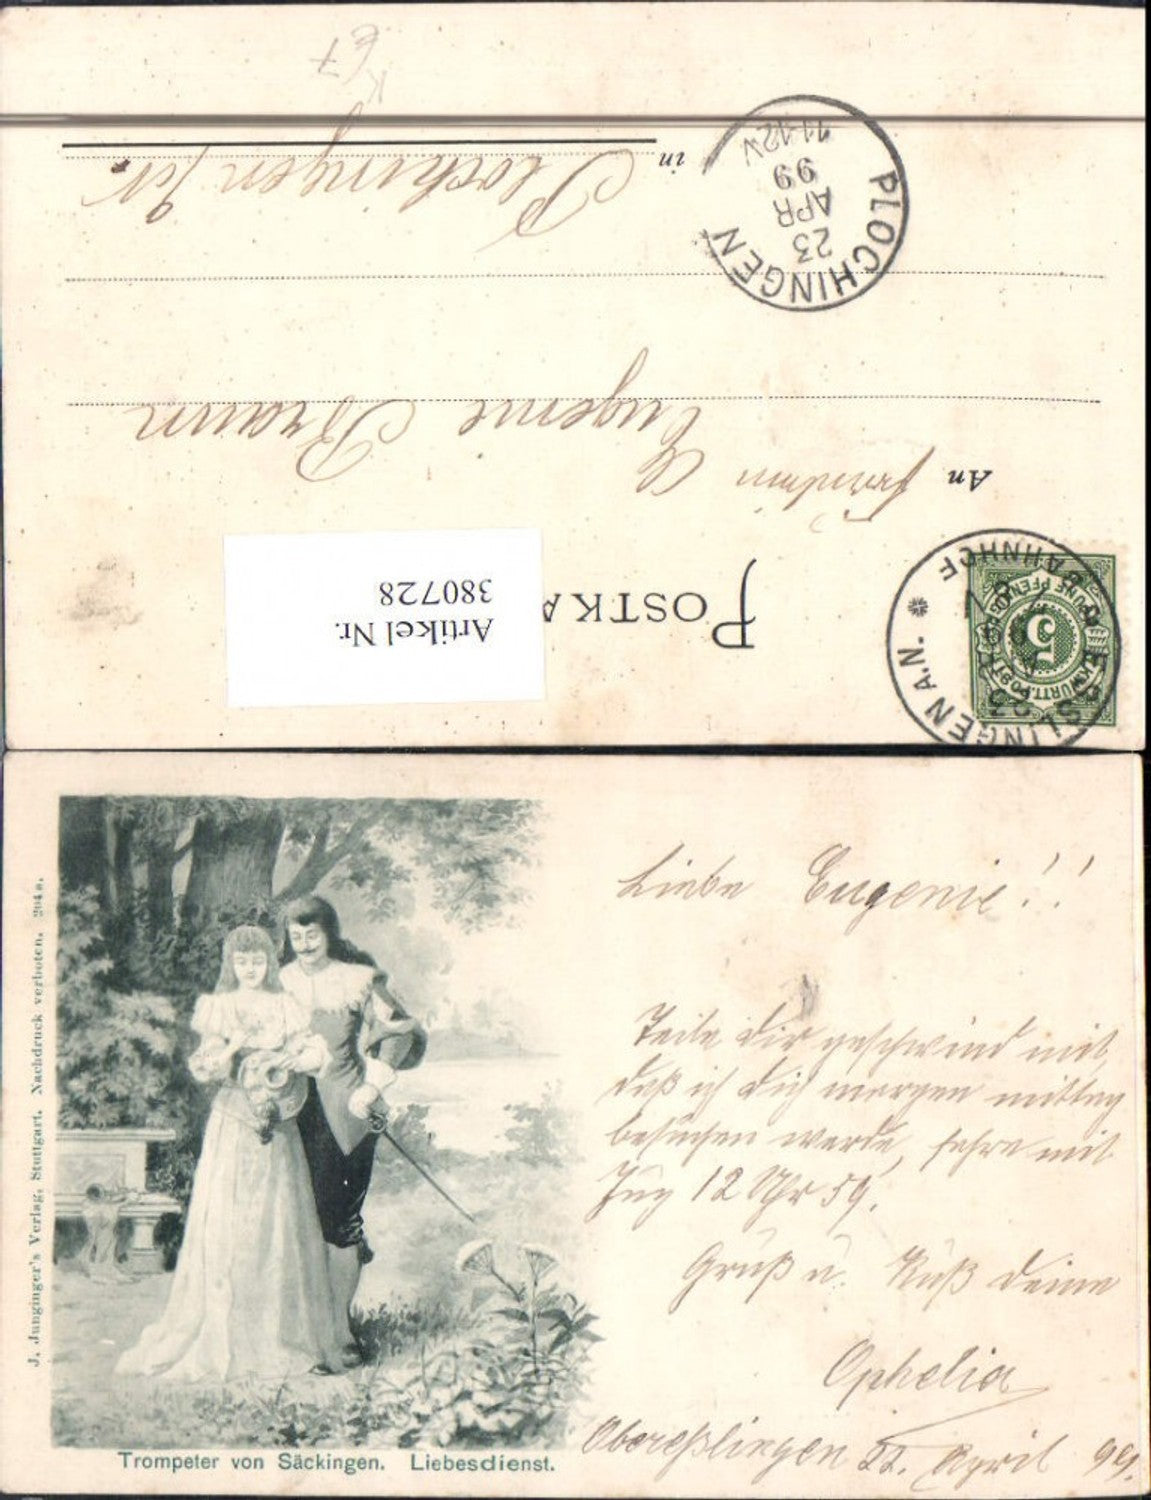 67
K
in Plochingen
PLOCHINGEN
23
APR
99
11-12V
Eugenie Braun
An Fräulein
POSTKA
Artikel Nr.
380728
ESSLINGEN A.N. * BAHNHOF
K.WÜRTT.POST
FÜNF PFENNIG
5
J. Junginger's Verlag, Stuttgart. Nachdruck verboten. 204 s.
Trompeter von Säckingen. Liebesdienst.
Liebe Eugenie!!
Teile Dir geschwind mit,
daß ich Dich morgen mittag
besuchen werde, fahre mit
Zug 12 Uhr 59.
Gruß u. Kuß Deine
Ophelia
Obereßlingen 22. April 99.